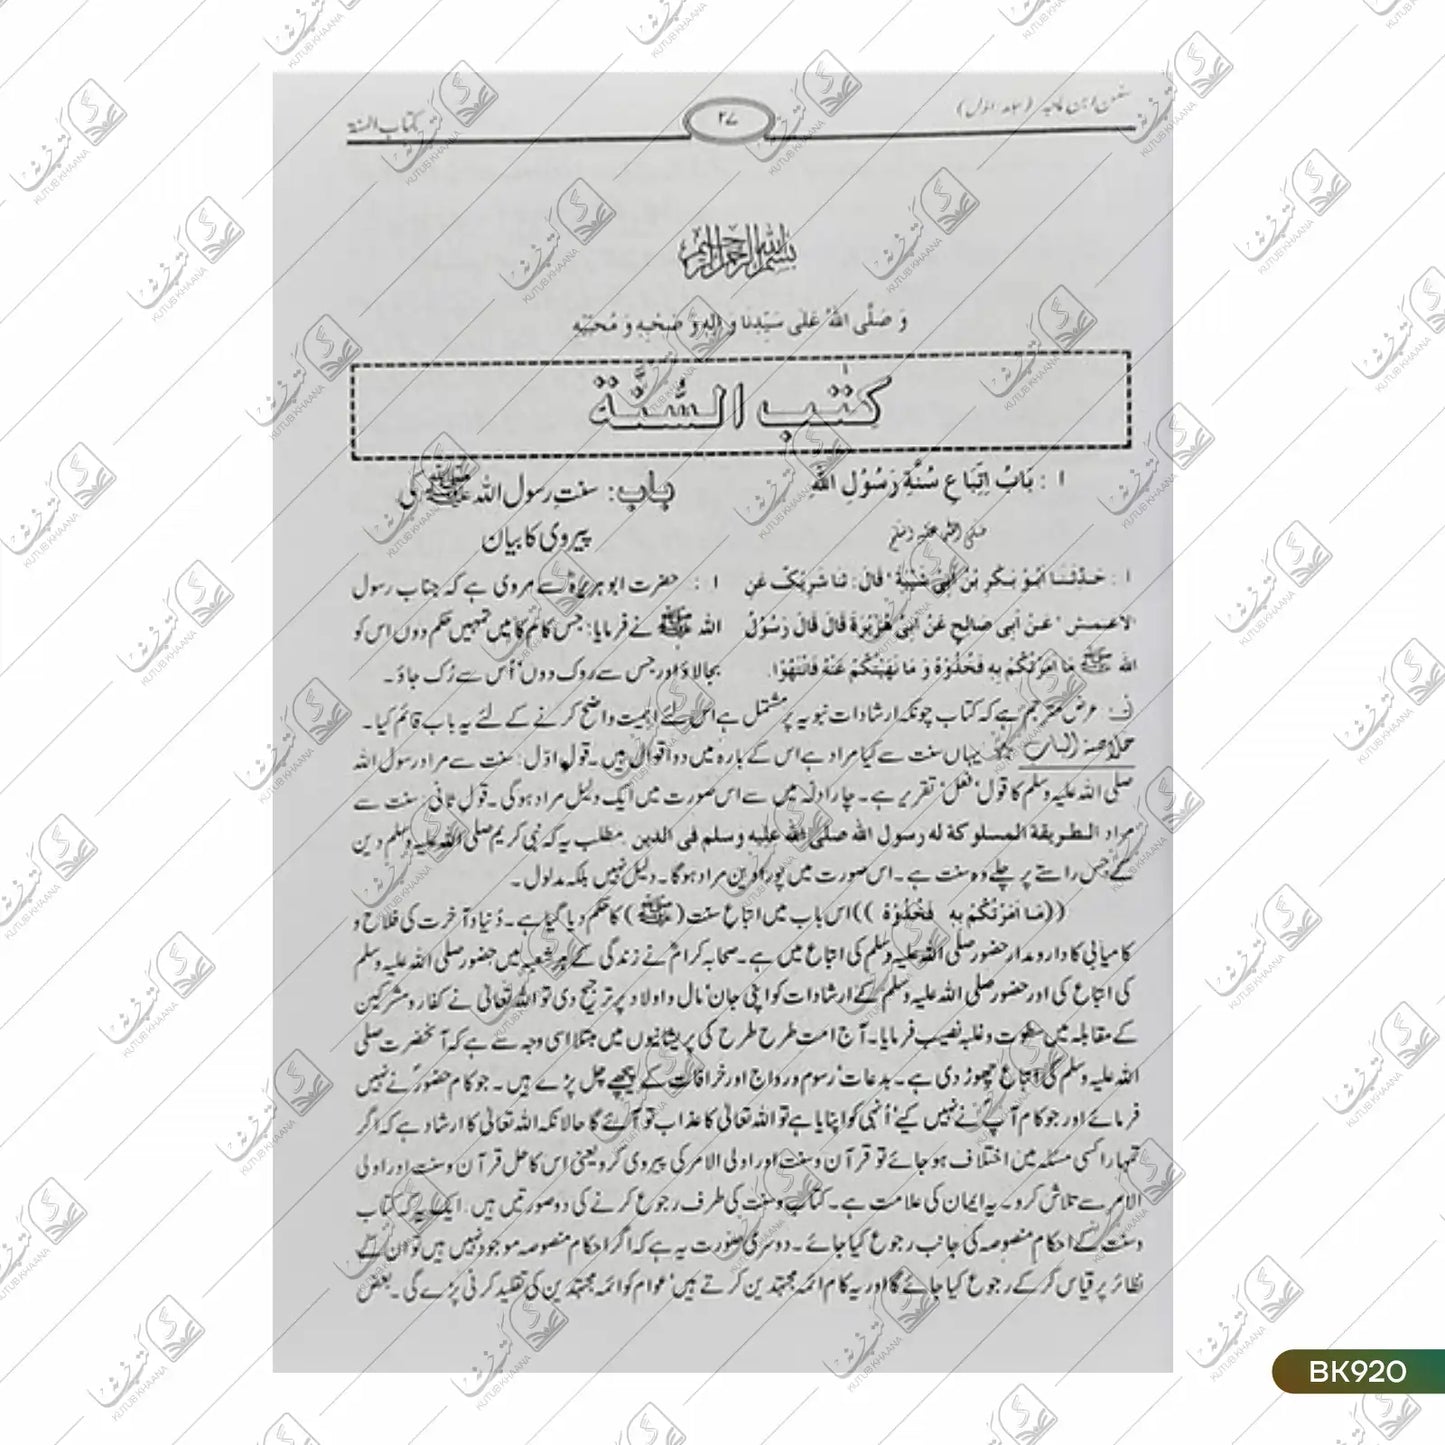 سنن ابن ماجہ (جلد اوّل)
۲۷
کتاب السنۃ
بسم اللہ الرحمن الرحیم
وَ صَلَّی اللہُ عَلٰی سَیِّدِنَا وَ اٰلِہٖ وَ صَحْبِہٖ وَ مُحِبِّیْہِ
کِتٰب السُّنَّة
۱ : بَابُ اِتِّبَاعِ سُنَّةِ رَسُوْلِ اللہِ
صلی اللہ علیہ وسلم
۱ : حَدَّثَنَا اَبُوْ بَکْرِ بْنُ اَبِیْ شَیْبَةَ ' قَالَ : ثَنَا شَرِیْکٌ عَنِ
الاعمش ' عَنْ اَبِی صَالِحٍ عَنْ اَبِیْ هُرَیْرَةَ قَالَ قَالَ رَسُوْلُ
اللہ ﷺ مَا اَمَرْتُکُمْ بِهٖ فَخُذُوْهُ وَ مَا نَهَیْتُکُمْ عَنْهُ فَانْتَهُوْا.
باب: سنتِ رسول اللہ ﷺ کی
پیروی کا بیان
۱ : حضرت ابو ہریرہؓ سے مروی ہے کہ جناب رسول
اللہ ﷺ نے فرمایا: جس کام کا میں تمہیں حکم دوں اس کو
بجا لاؤ اور جس سے روک دوں' اُس سے رُک جاؤ۔
ف: عرض مترجم ہے کہ کتاب چونکہ ارشادات نبویہ پر مشتمل ہے اس لئے اہمیت واضح کرنے کے لئے یہ باب قائم کیا۔
خلاصة الباب ☆ یہاں سنت سے کیا مراد ہے اس کے بارہ میں دو اقوال ہیں۔ قول اوّل: سنت سے مراد رسول اللہ
صلی اللہ علیہ وسلم کا قول' فعل' تقریر ہے۔ چار ادلہ میں سے اس صورت میں ایک دلیل مراد ہوگی۔ قول ثانی: سنت سے
مراد الطریقة المسلوکة له رسول اللہ صلی اللہ علیه وسلم فی الدین۔ مطلب یہ کہ نبی کریم صلی اللہ علیہ وسلم دین
کے جس راستے پر چلے وہ سنت ہے۔ اس صورت میں پورا دین مراد ہوگا۔ دلیل نہیں بلکہ مدلول۔
((مَا اَمَرْتُکُمْ بِهٖ فَخُذُوْهُ)) اس باب میں اتباع سنت (ﷺ) کا حکم دیا گیا ہے۔ دُنیا و آخرت کی فلاح و
کامیابی کا دارومدار حضور صلی اللہ علیہ وسلم کی اتباع میں ہے۔ صحابہ کرامؓ نے زندگی کے ہر شعبہ میں حضور صلی اللہ علیہ وسلم
کی اتباع کی اور حضور صلی اللہ علیہ وسلم کے ارشادات کو اپنی جان' مال و اولاد پر ترجیح دی تو اللہ تعالیٰ نے کفار و مشرکین
کے مقابلہ میں سطوت و غلبہ نصیب فرمایا۔ آج امت طرح طرح کی پریشانیوں میں مبتلا اسی وجہ سے ہے کہ آنحضرت صلی
اللہ علیہ وسلم کی اتباع چھوڑ دی ہے۔ بدعات' رسوم و رواج اور خرافات کے پیچھے چل پڑے ہیں۔ جو کام حضورؐ نے نہیں
فرمائے اور جو کام آپؐ نے نہیں کیے' اُنہی کو اپنایا ہے تو اللہ تعالیٰ کا عذاب تو آئے گا حالانکہ اللہ تعالیٰ کا ارشاد ہے کہ اگر
تمہارا کسی مسئلہ میں اختلاف ہو جائے تو قرآن و سنت اور اولی الامر کی پیروی کرو یعنی اس کا حل قرآن و سنت اور اولی
الامر سے تلاش کرو۔ یہ ایمان کی علامت ہے۔ کتاب و سنت کی طرف رجوع کرنے کی دو صورتیں ہیں: ایک یہ کہ کتاب
و سنت کے احکام منصوصہ کی جانب رجوع کیا جائے۔ دوسری صورت یہ ہے کہ اگر احکام منصوصہ موجود نہیں ہیں تو ان کے
نظائر پر قیاس کر کے رجوع کیا جائے گا اور یہ کام ائمہ مجتہدین کرتے ہیں' عوام کو ائمہ مجتہدین کی تقلید کرنی پڑے گی۔ بعض
BK920
کتب خانہ
KUTUB KHAANA